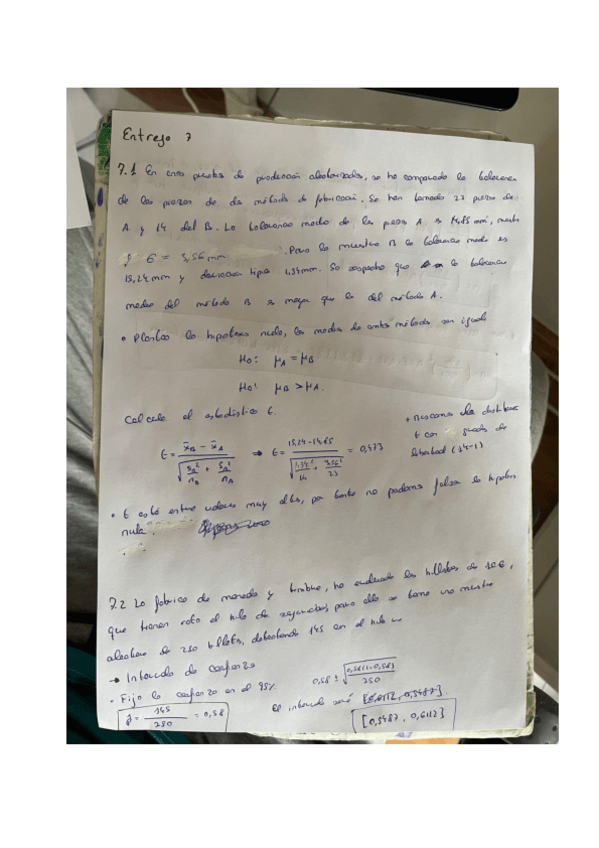 Entrega 7
7.1 En unas pruebas de producción aleatorizadas, se ha comparado la tolerancia
de las piezas de dos métodos de fabricación. Se han tomado 23 piezas de
A y 14 del B. La tolerancia media de las piezas A es 14,85 mm,
y σ = 3,56 mm . Para la muestra B la tolerancia media es
15,24 mm y desviación tipica 1,34mm. Se sospecha que la tolerancia
media del método B es mayor que la del método A.
• Plantea la hipótesis nula, las medias de ambos métodos son igual
H0: μA = μB
H0: μB > μA.
Calcula el estadístico t.
t = x̄B - x̄A / √(sB²/nB + sA²/nA) → t = 15,24-14,85 / √(1,34²/14 + 3,56²/23) = 0,473
* Buscamos la
t con grados de
libertad (14-1)
• t está entre valores muy altos, por tanto no podemos la hipótesis
nula.
7.2 La fabrica de moneda y timbre, ha evaluado los billetes de 10€,
que tienen roto el hilo de seguridad para ello se toma una muestra
aleatoria de 250 billetes, detectando 145 en el hilo
→ Intervalo de confianza
• Fijo la confianza en el 95%
0,58 ± √(0,58(1-0,58)/250)
p̂ = 145/250 = 0,58
El intervalo será
[0,5487, 0,6112]